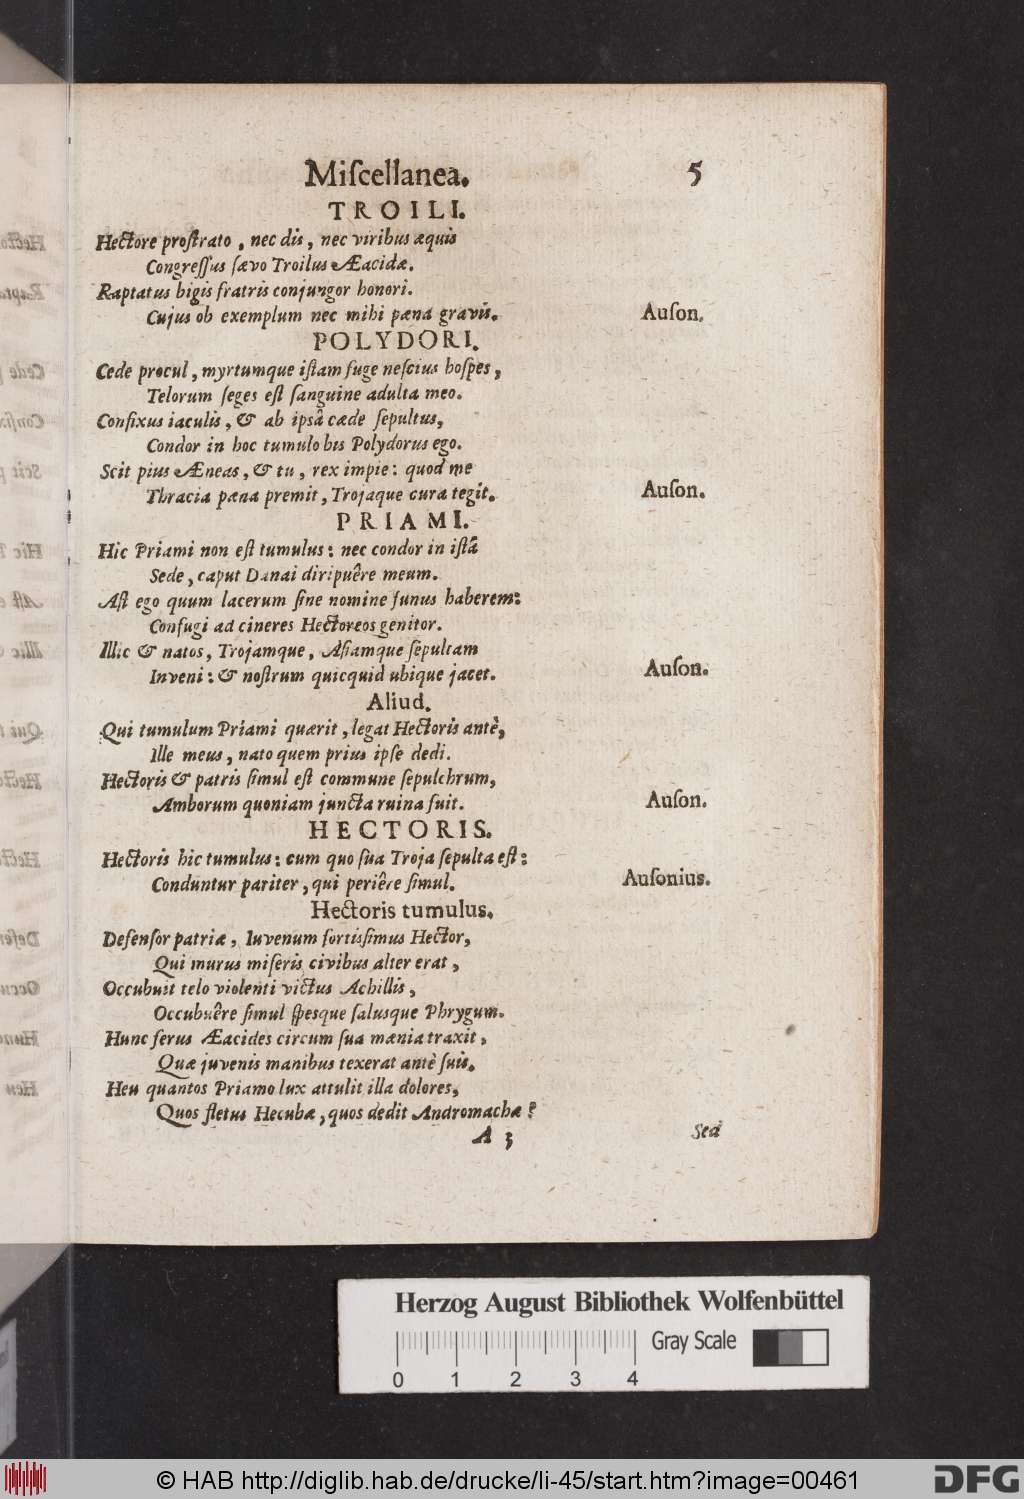 Miſcellanea. 5
TROILI.
Hectore proſtrato, nec dis, nec viribus æquis
Congreſſus ſævo Troilus Æacidæ.
Raptatus bigis fratris conjungor honori.
Cujus ob exemplum nec mihi pæna gravis. Auſon.
POLYDORI.
Cede procul, myrtumque iſtam fuge neſcius hoſpes,
Telorum ſeges eſt ſanguine adulta meo.
Confixus iaculis, & ab ipsâ cæde ſepultus,
Condor in hoc tumulo bis Polydorus ego.
Scit pius Æneas, & tu, rex impie: quod me
Thracia pæna premit, Trojaque cura tegit. Auſon.
PRIAMI.
Hic Priami non eſt tumulus: nec condor in iſtâ
Sede, caput Danai diripuêre meum.
Aſt ego quum lacerum ſine nomine funus haberem:
Confugi ad cineres Hectoreos genitor.
Illic & natos, Trojamque, Aſiamque ſepultam
Inveni: & noſtrum quicquid ubique jacet. Auſon.
Aliud.
Qui tumulum Priami quærit, legat Hectoris antè,
Ille meus, nato quem prius ipſe dedi.
Hectoris & patris ſimul eſt commune ſepulchrum,
Amborum quoniam juncta ruina fuit. Auſon.
HECTORIS.
Hectoris hic tumulus: cum quo ſua Troja ſepulta eſt:
Conduntur pariter, qui periêre ſimul. Auſonius.
Hectoris tumulus.
Defenſor patriæ, Iuvenum fortiſſimus Hector,
Qui murus miſeris civibus alter erat,
Occubuit telo violenti victus Achillis,
Occubuêre ſimul ſpesque ſalusque Phrygum.
Hunc ferus Æacides circum ſua mænia traxit,
Quæ juvenis manibus texerat antè ſuis.
Heu quantos Priamo lux attulit illa dolores,
Quos fletus Hecubæ, quos dedit Andromachæ?
A 3 Sed
Herzog August Bibliothek Wolfenbüttel
Gray Scale
0 1 2 3 4
© HAB http://diglib.hab.de/drucke/li-45/start.htm?image=00461
DFG